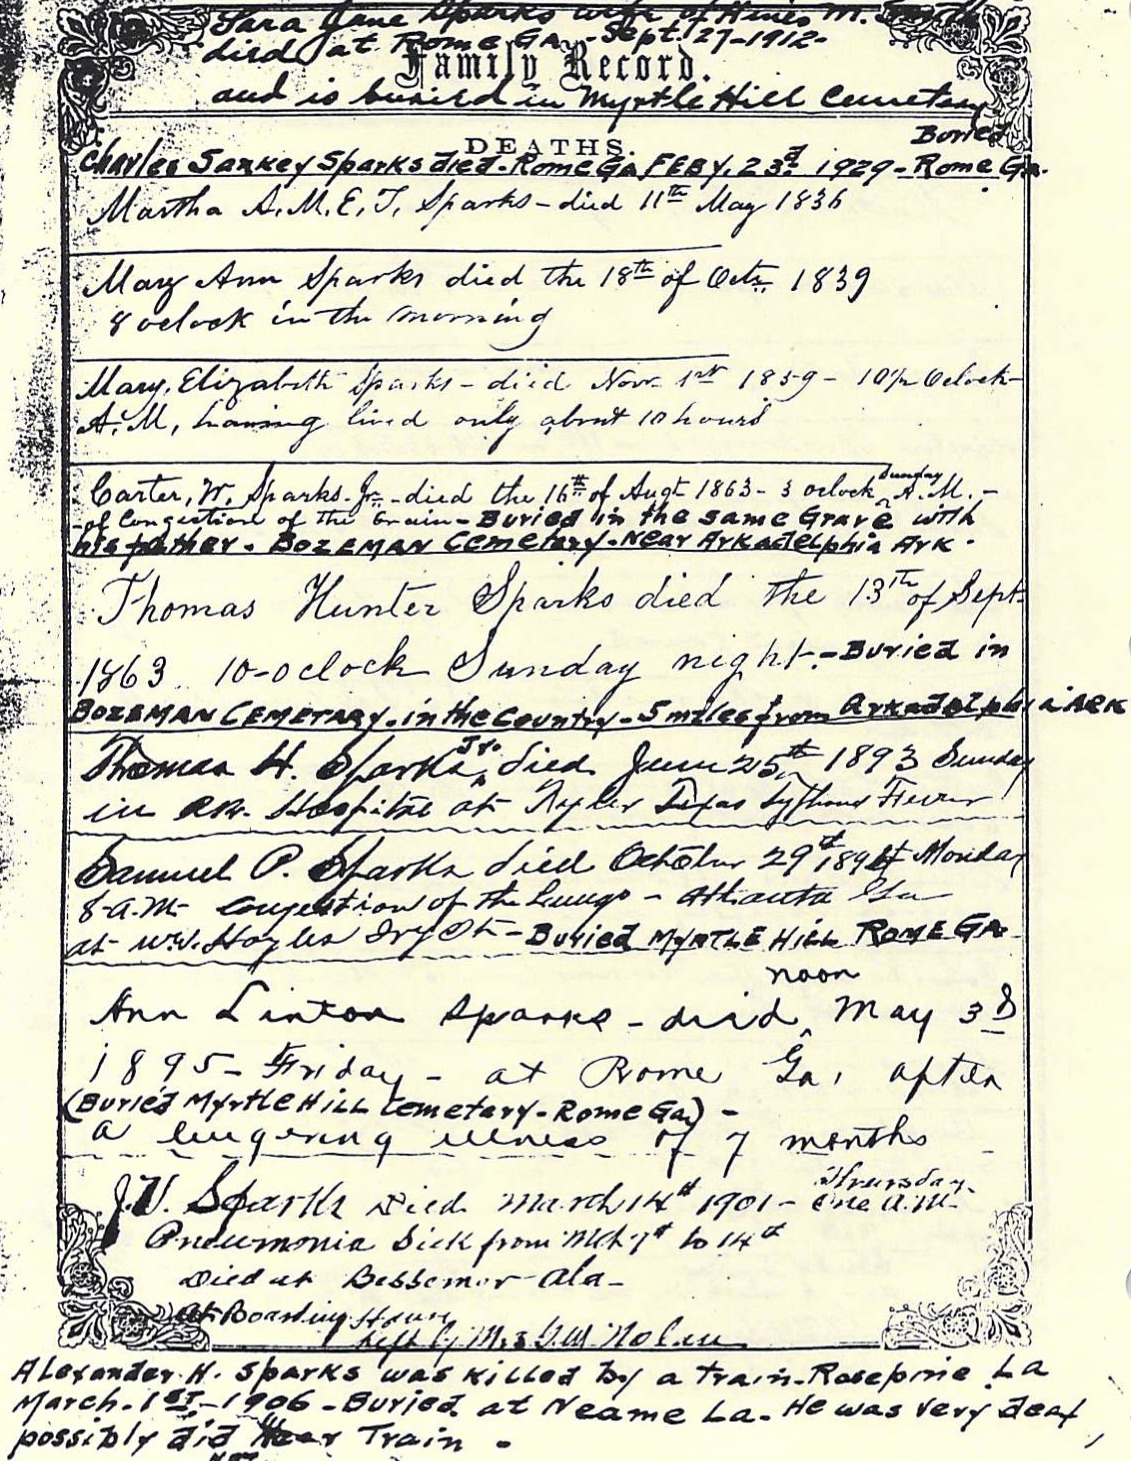 Sara Jane Sparks wife of Hines M. Sparks
died at Rome GA - Sept. 27-1912-
Family Record.
and is buried in Myrtle Hill Cemetery
DEATHS.
Buried
Charles Sankey Sparks died - Rome Ga FEBY. 23d 1929 - Rome Ga.
Martha A. M. E. T. Sparks - died 11th May 1836
Mary Ann Sparks died the 18th of Oct. 1839
8 oclock in the morning
Mary, Elizabeth Sparks - died Nov. 1st 1859 - 10½ Oclock
A. M, having lived only about 10 hours
Sunday
Carter, W, Sparks Jr. - died the 16th of Augt 1863 - 3 oclock A.M. -
- of Congestion of the brain - Buried in the same Grave with
his father. BOZEMAN Cemetery. Near Arkadelphia Ark.
Thomas Hunter Sparks died the 13th of Sept.
1863 10-oclock Sunday night. - Buried in
BOZEMAN CEMETARY. in the Country - 5 miles from Arkadelphia ARK
Thomas H. Sparks, Jr. died June 25th 1893 Sunday
in RR. Hospital at Tyler Texas Typhoid Fever
Samuel P. Sparks died October 29th 1894 Monday
8-A.M- Congestion of the Lungs - Atlanta Ga
at W.W. - Buried MYRTLE HILL ROME GA.
noon
Ann Linton Sparks - died May 3d
1895 - Friday - at Rome Ga, after
(Buried Myrtle Hill Cemetary - Rome Ga) -
a lingering illness of 7 months
Thursday
J.V. Sparks Died March 14th 1901 - One A.M.
Pneumonia Sick from Mch 7th to 14th
Died at Bessemer - Ala -
At Boarding House
Kept by Mrs Nolen
Alexander H. Sparks was killed by a train - Rosepine La
March. 1st - 1906 - Buried at Neame La. He was very deaf
possibly did Hear Train -